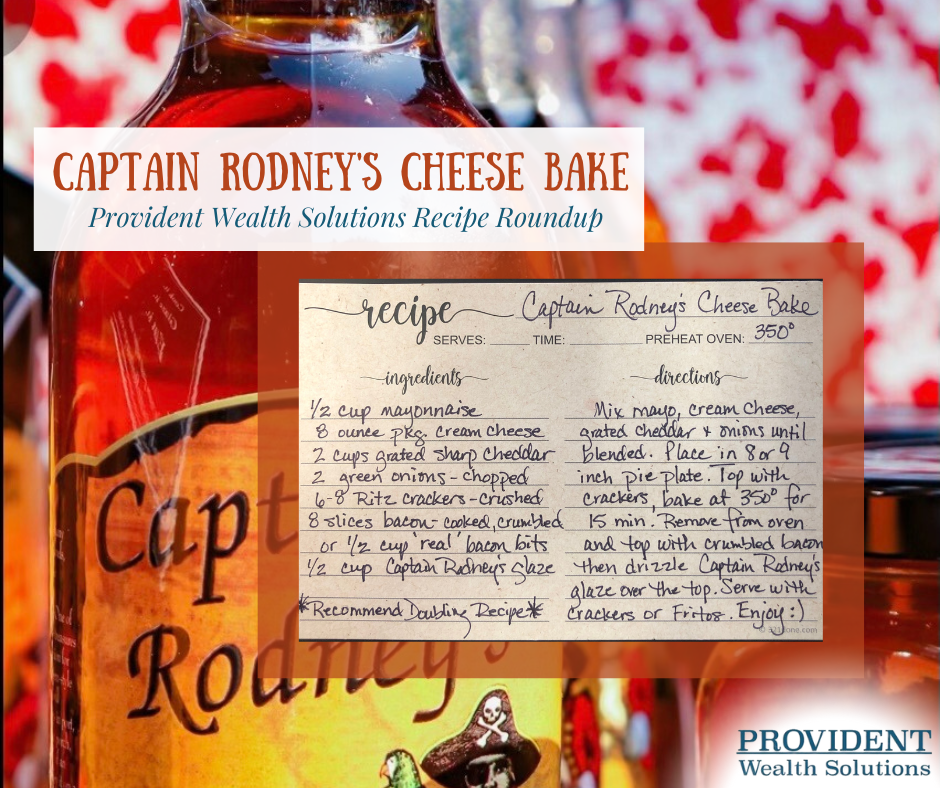 CAPTAIN RODNEY'S CHEESE BAKE
Provident Wealth Solutions Recipe Roundup
recipe Captain Rodney's Cheese Bake
SERVES: TIME: PREHEAT OVEN: 350°
ingredients
1/2 cup mayonnaise
8 ounce pkg. cream cheese
2 cups grated sharp cheddar
2 green onions - chopped
6-8 Ritz crackers - crushed
8 slices bacon - cooked, crumbled
or 1/2 cup 'real' bacon bits
1/2 cup Captain Rodney's glaze
*Recommend Doubling Recipe*
directions
Mix mayo, cream cheese,
grated cheddar + onions until
blended. Place in 8 or 9
inch pie plate. Top with
crackers, bake at 350° for
15 min. Remove from oven
and top with crumbled bacon
then drizzle Captain Rodney's
glaze over the top. Serve with
crackers or Fritos. Enjoy :)
Capt
Rodney's
PROVIDENT
Wealth Solutions